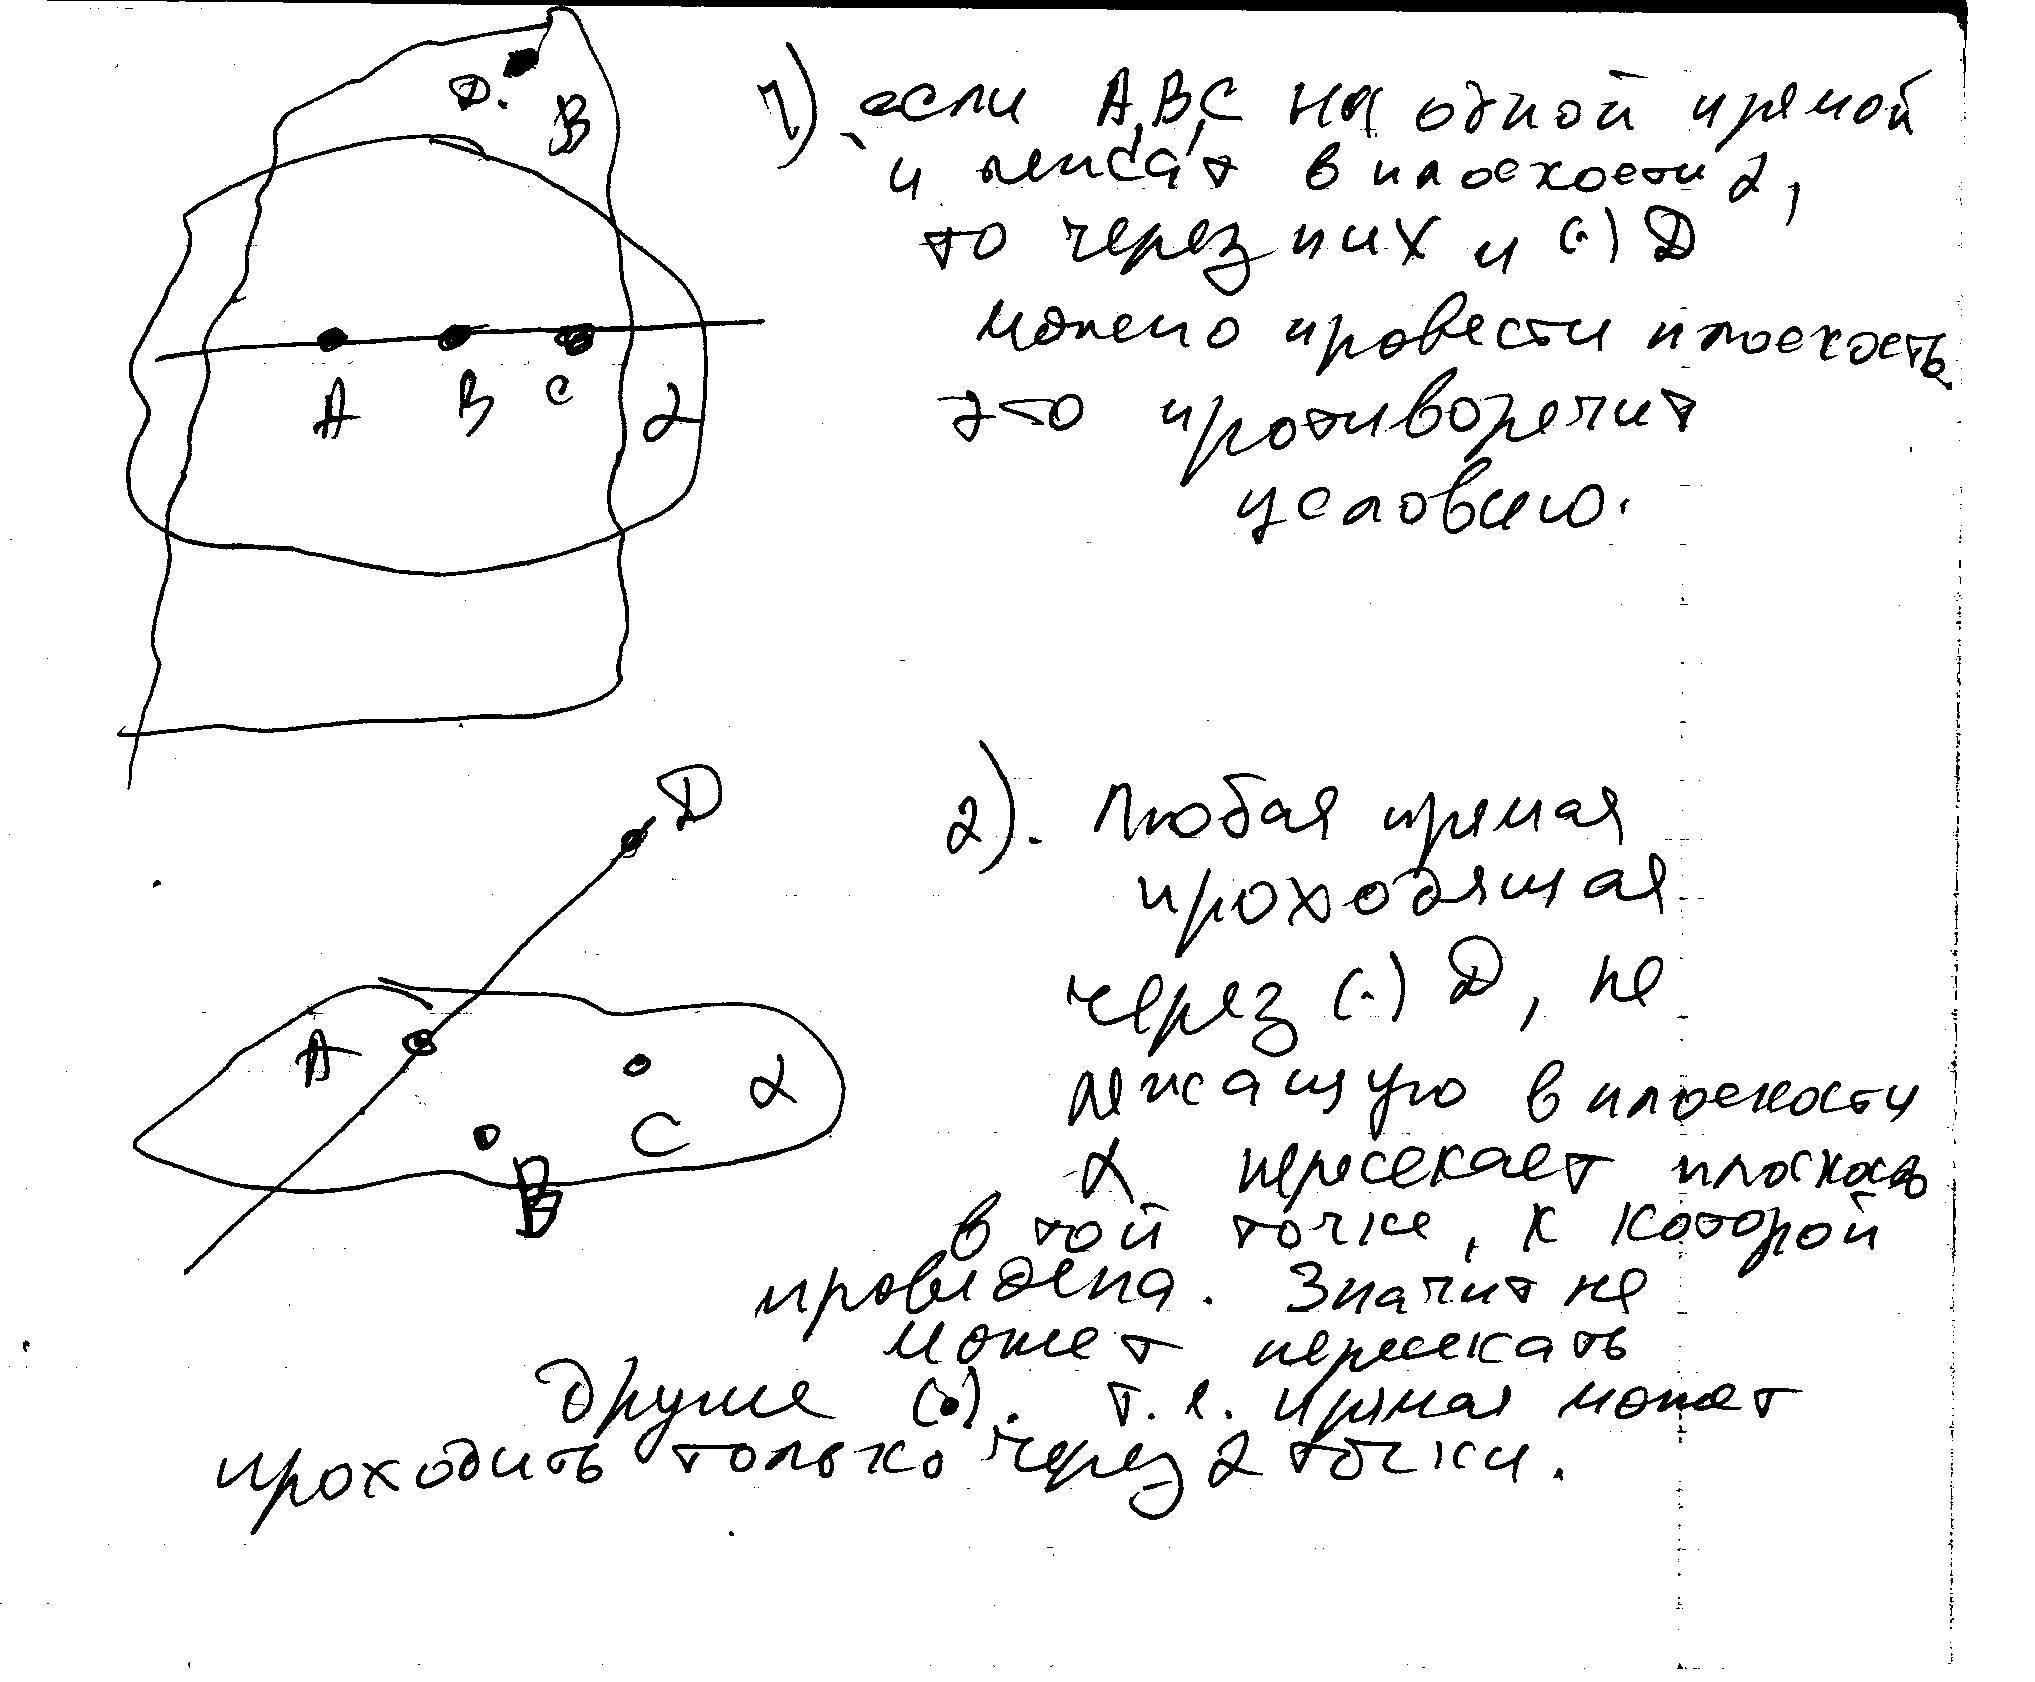 D.
B
A B C α
1) если A,B,C на одной прямой
и лежат в плоскости α,
то через них и (·) D
можно провести плоскость
это противоречит
условию.
D
A
B
C
α
2). Любая прямая
проходящая
через (·) D, не
лежащую в плоскости
α пересекает плоскость
в той точке, к которой
проведена. Значит не
может пересекать
другие (·). т.е. прямая может
проходить только через 2 точки.